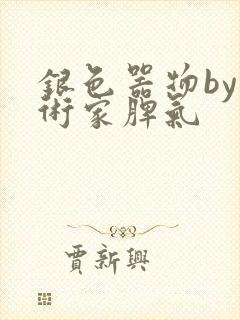 銀色器物by
術家脾氣
賈新興